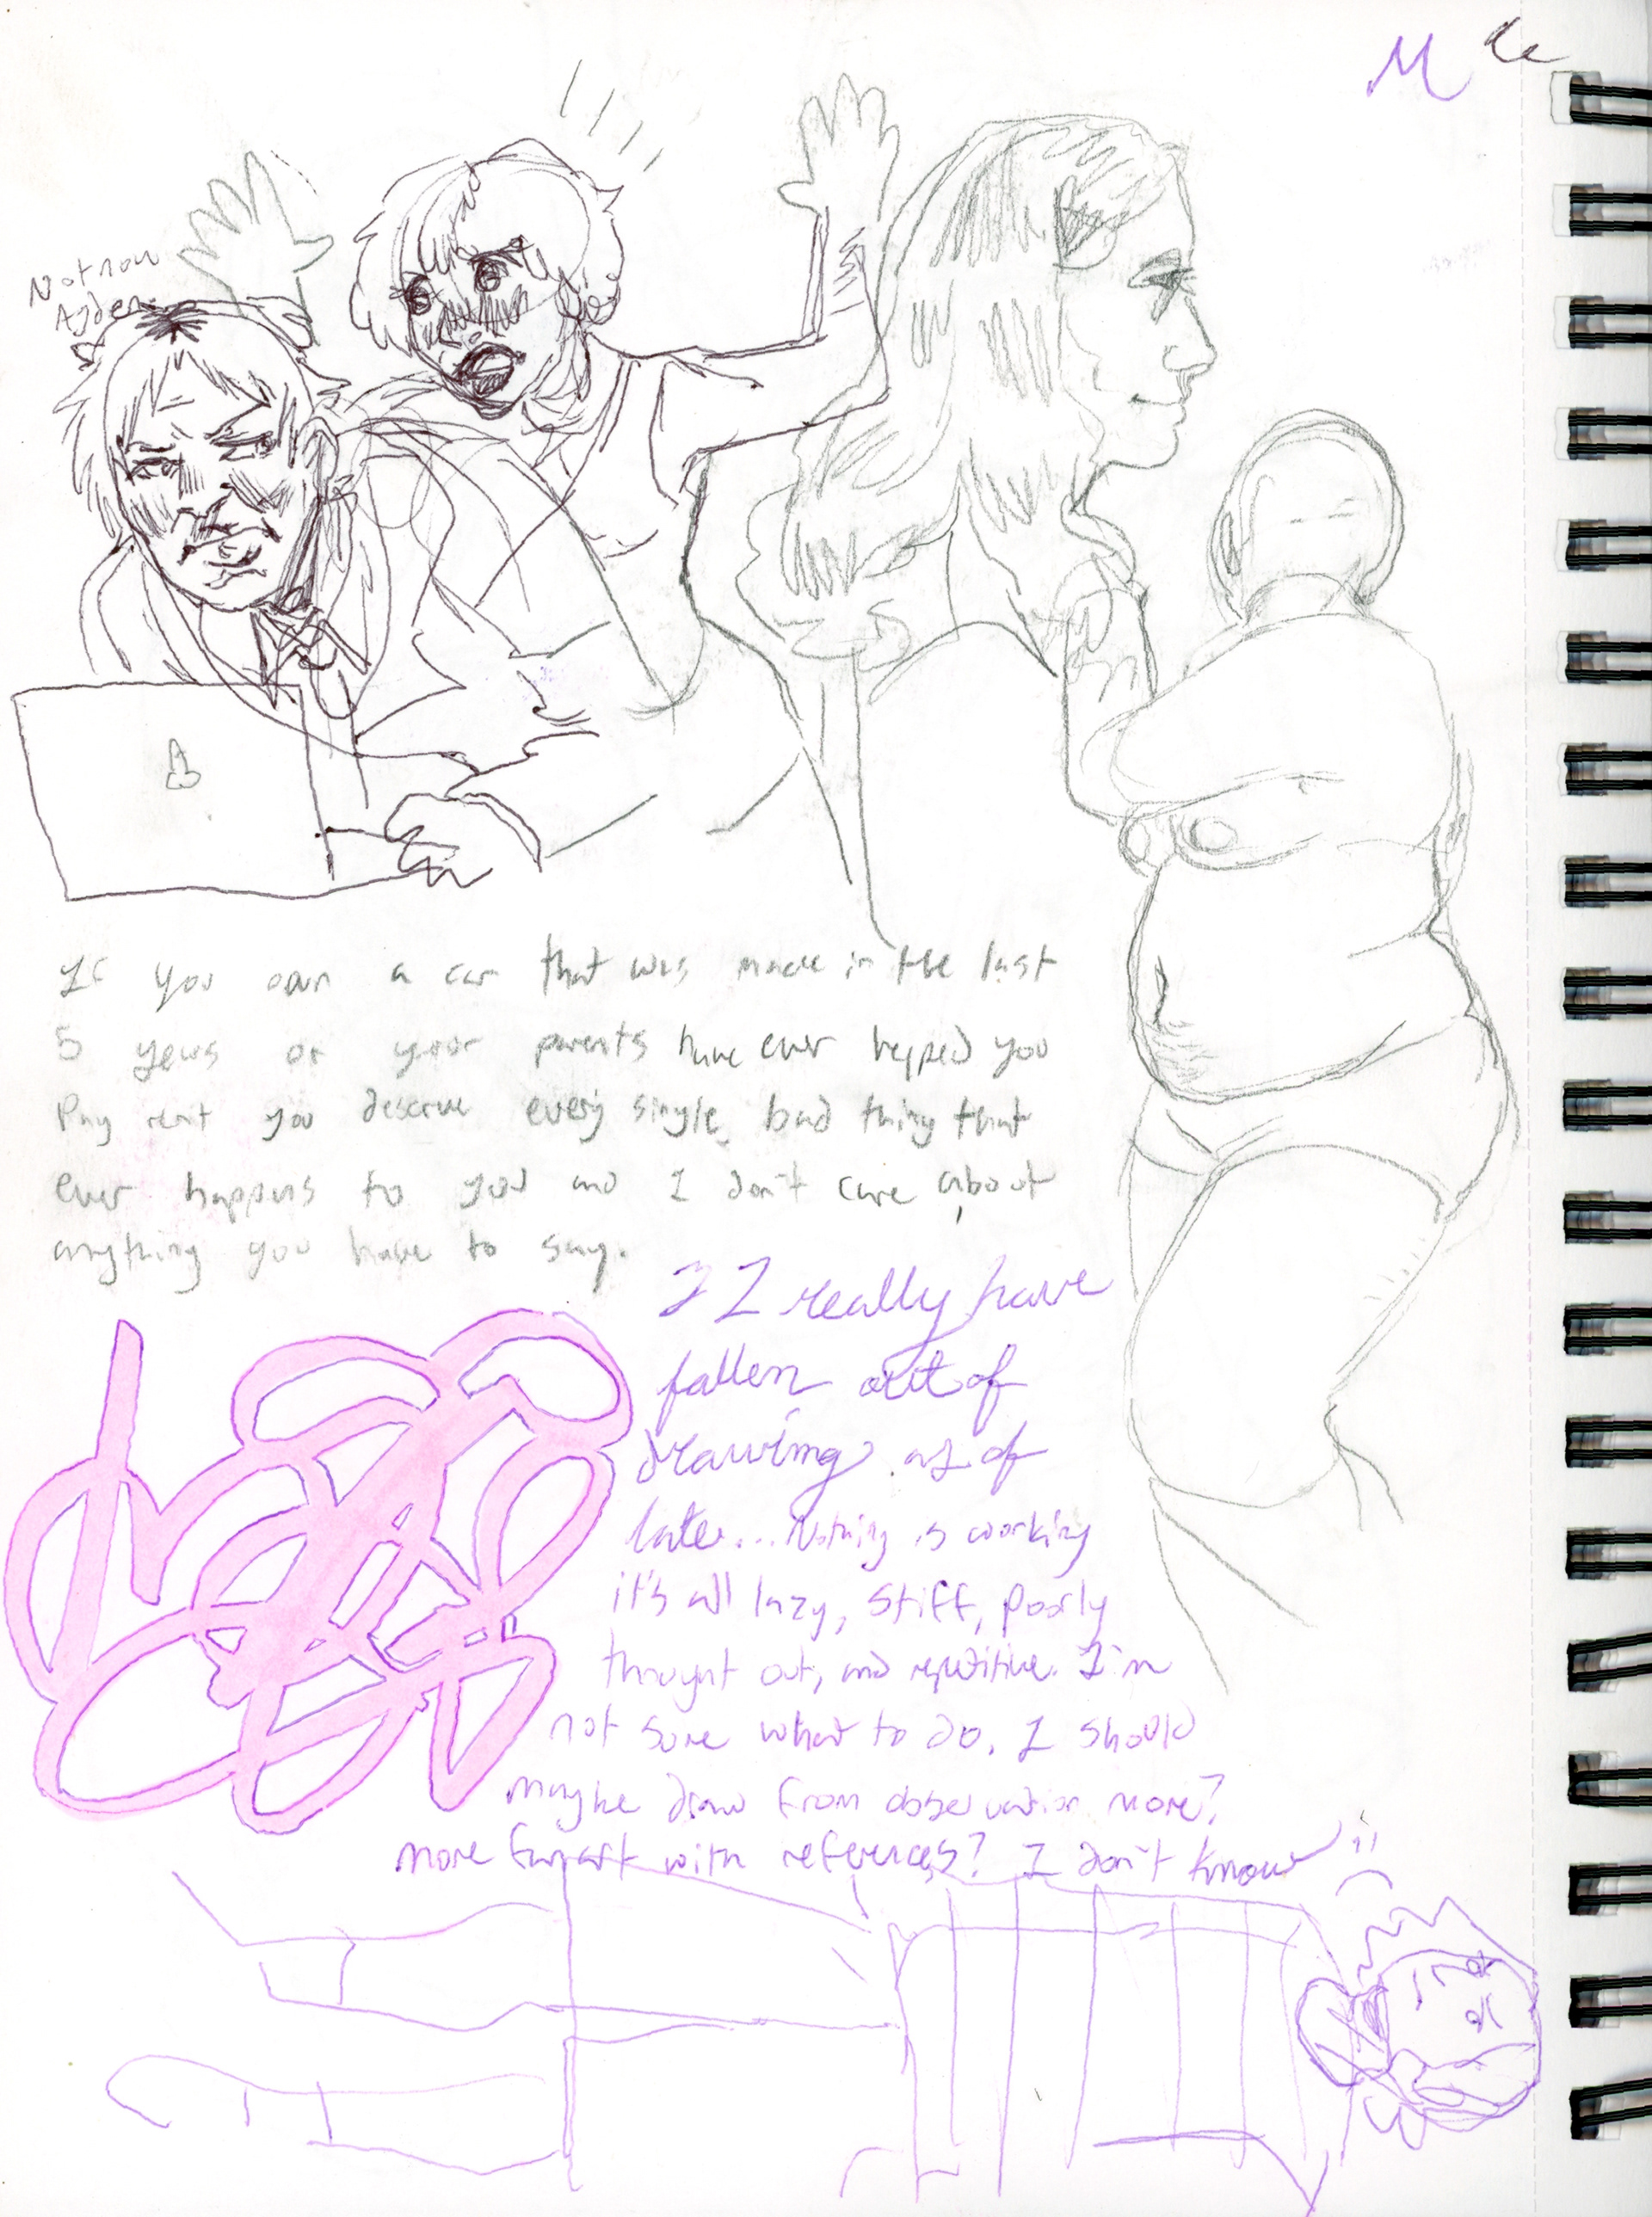 M
Not now
Ayden
If you own a car that was made in the last
5 years or your parents have ever helped you
Pay rent you deserve every single bad thing that
ever happens to you and I don't care about
anything you have to say.
I I really have
fallen out of
drawing as of
late... Nothing is working
it's all lazy, stiff, poorly
thought out, and repetitive. I'm
not sure what to do. I should
maybe draw from observation more?
more fanart with references? I don't know